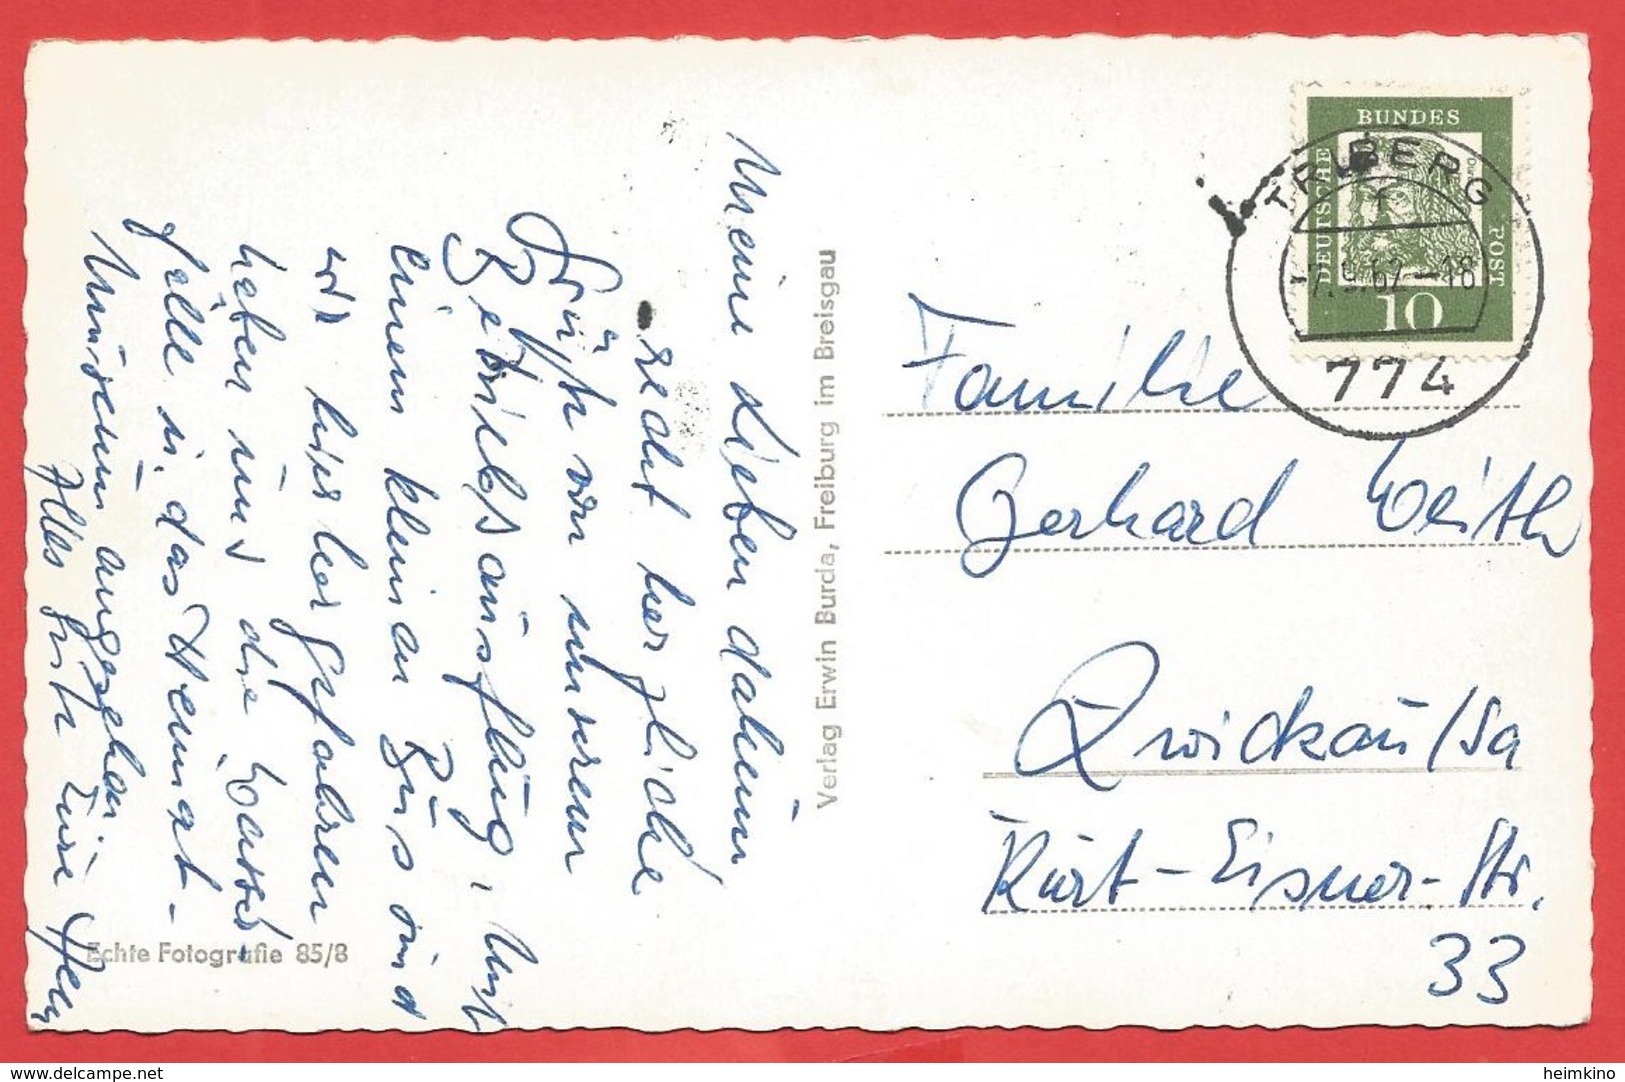 Meine Lieben daheim,
recht herzliche
Grüße von unserem
Betriebsausflug. Mit
einem kleinen Bus sind
wir hierher gefahren
haben uns die Wasser-
fälle u. das Heimat-
Museum angesehen
Alles Gute Eure
Verlag Erwin Burda, Freiburg im Breisgau
Echte Fotografie 85/8
BUNDES
DEUTSCHE
POST
10
TRIBERG
-7.9.62-18
774
Familie
Gerhard Weith
Zwickau/Sa
Kurt-Eisner-Str.
33
delcampe.net
heimkino